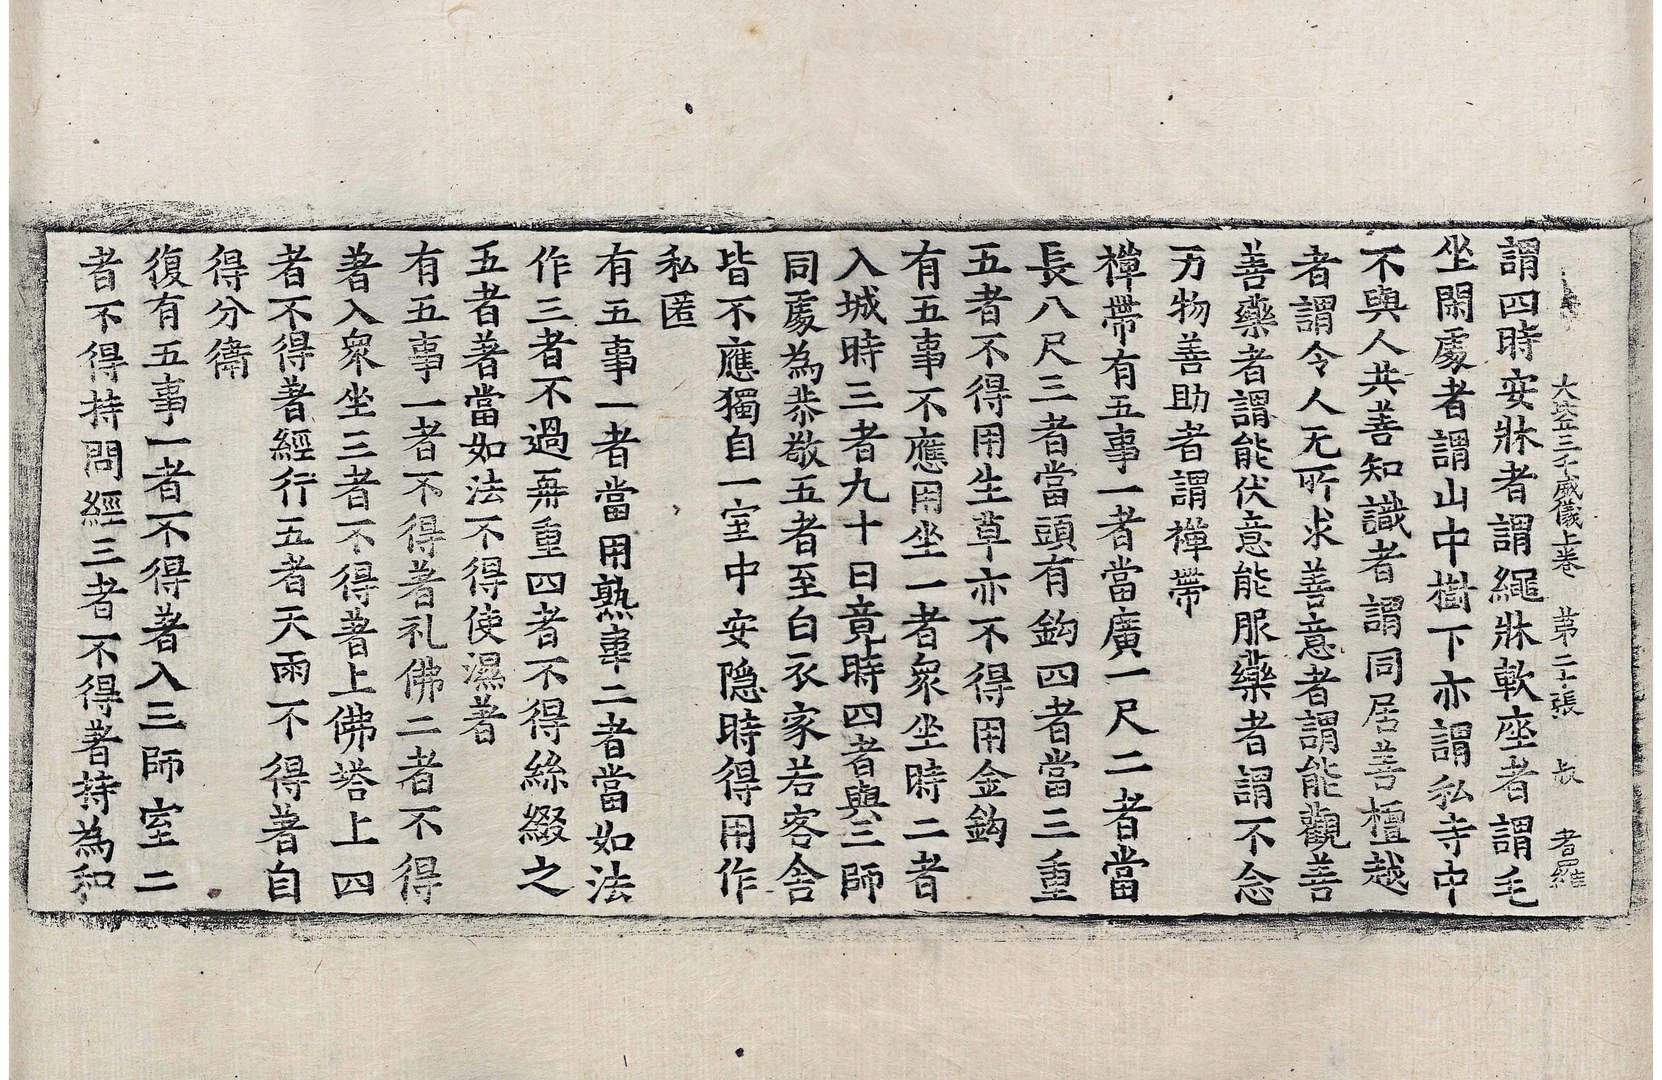 大比丘三千威儀上卷 第二十張 者羅
謂四時安牀者謂繩牀軟座者謂毛
坐閑處者謂山中樹下亦謂私寺中
不與人共善知識者謂同居善檀越
者謂令人无所求善意者謂能觀善
善藥者謂能伏意能服藥者謂不念
万物善助者謂襌帶
襌帶有五事一者當廣一尺二者當
長八尺三者當頭有鈎四者當三重
五者不得用生草亦不得用金鈎
有五事不應用坐一者衆坐時二者
入城時三者九十日竟時四者與三師
同處為恭敬五者至白衣家若客舍
皆不應獨自一室中安隐時得用作
私匿
有五事一者當用熟韋二者當如法
作三者不過再重四者不得絲綴之
五者著當如法不得使濕著
有五事一者不得著礼佛二者不得
著入衆坐三者不得著上佛塔上四
者不得著經行五者天雨不得著自
得分衛
復有五事一者不得著入三師室二
者不得持問經三者不得著持為和